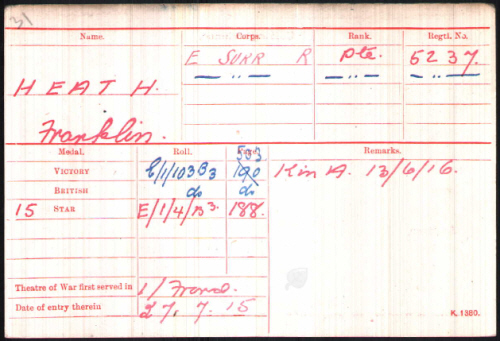 31
Name. Corps. Rank. Regtl. No.
E SURR R Pte. 5237.
— „ — — „ —
HEATH.
Franklin.
Medal. Roll. Page. Remarks.
503
VICTORY E/1/103B3 190 Kin A. 13/6/16.
BRITISH do do
15 STAR E/1/4/B3. 188.
Theatre of War first served in 1/ France.
Date of entry therein 27. 7. 15
K. 1380.